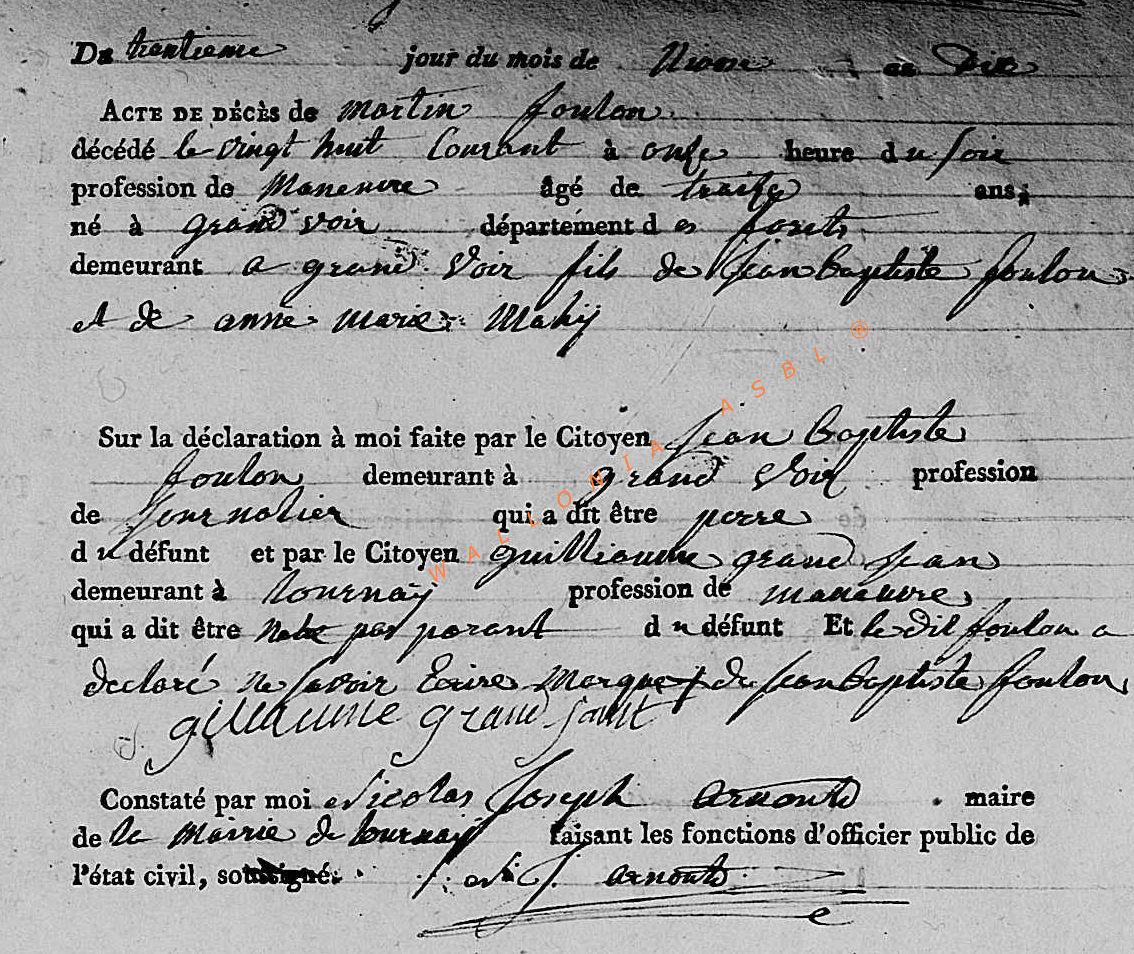 Du trantieme jour du mois de Nivose an Dix
ACTE DE DÉCÈS de martin foulon
décédé le vingt huit Courant à onse heure du soir
profession de Maneuvre âgé de traise ans;
né à grand voir département des forets
demeurant a grand Voir fils de Jean baptiste foulon
et de anne marie Mahij
Sur la déclaration à moi faite par le Citoyen Jean baptiste
foulon demeurant à grand Voir profession
de Journalier qui a dit être perre
du défunt et par le Citoyen guilliaume grand Jean
demeurant à tournay profession de maneuvre
qui a dit être pas parant du défunt Et le dit foulon a
declaré ne savoir Ecrire Marque + de Jean baptiste foulon
gillaume grand
Constaté par moi Nicolas Joseph Arnould maire
de la Mairie de tournaij faisant les fonctions d'officier public de
l'état civil, soussigné. N. J. arnould
WALLONIA ASBL ®